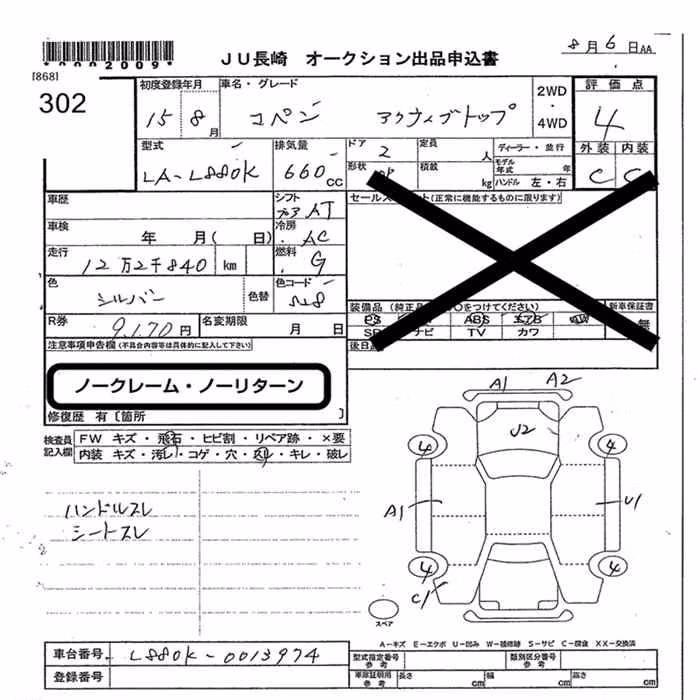 *0002009*
[868]
JU長崎 オークション出品申込書
8月6日AA
302
初度登録年月 車名・グレード 2WD・4WD 評価点
15 8月 コペン アクティブトップ 4
型式 排気量 ドア 定員 ディーラー・並行 外装 内装
LA-L880K 660cc 2 人 モデル年式 年 C C
形状 積載 kg ハンドル 左・右
車歴 シフト AT セールスポイント(正常に機能するものに限ります)
車検 年 月( 日) 冷房 AC
走行 12万2千840km 燃料 G
色 シルバー 色替 色コード S28
装備品 (純正品 ○をつけてください) 新車保証書
PS ABS エアB AW
SR ナビ TV カワ 無
R券 9,170円 名変期限 月 日
後日
注意事項申告欄 (不具合内容等は具体的に記入して下さい)
ノークレーム・ノーリターン
修復歴 有 [箇所 ]
検査員記入欄 FW キズ・飛石・ヒビ割・リペア跡・×要
内装 キズ・汚レ・コゲ・穴・スレ・キレ・破レ
ハンドルスレ
シートスレ
A1 A2
U2
4 4
A1 U1
4 4
C1
スペア
A-キズ E-エクボ U-凹み W-補修跡 S-サビ C-腐食 XX-交換済
車台番号 L880K-0013974 型式指定番号 参考 類別区分番号 参考
登録番号 車庫証明用 参考 長さ cm 幅 cm 高さ cm